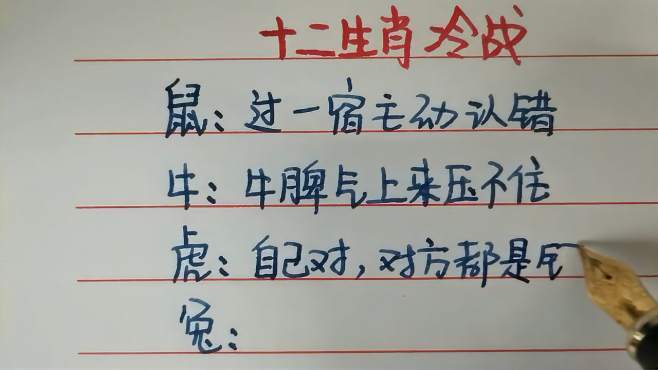 十二生肖冷战
鼠：过一宿主动认错
牛：牛脾气上来压不住
虎：自己对，对方都是
兔：